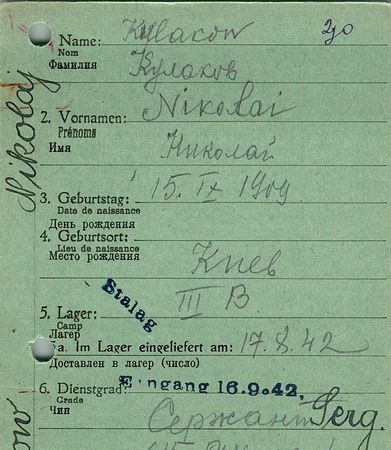 Name: Kulakow
Nom
Фамилия Кулаков
2. Vornamen: Nikolai
Prénoms
Имя Николай
3. Geburtstag: 15. IX 1909
Date de naissance
День рождения
4. Geburtsort:
Lieu de naissance
Место рождения Киев
5. Lager: Stalag III B
Camp
Лагерь
a. Im Lager eingeliefert am: 17.8.42
Доставлен в лагерь (число)
Eingang 16.9.42.
6. Dienstgrad:
Grade
Чин Сержант Serg.
Nikolaj